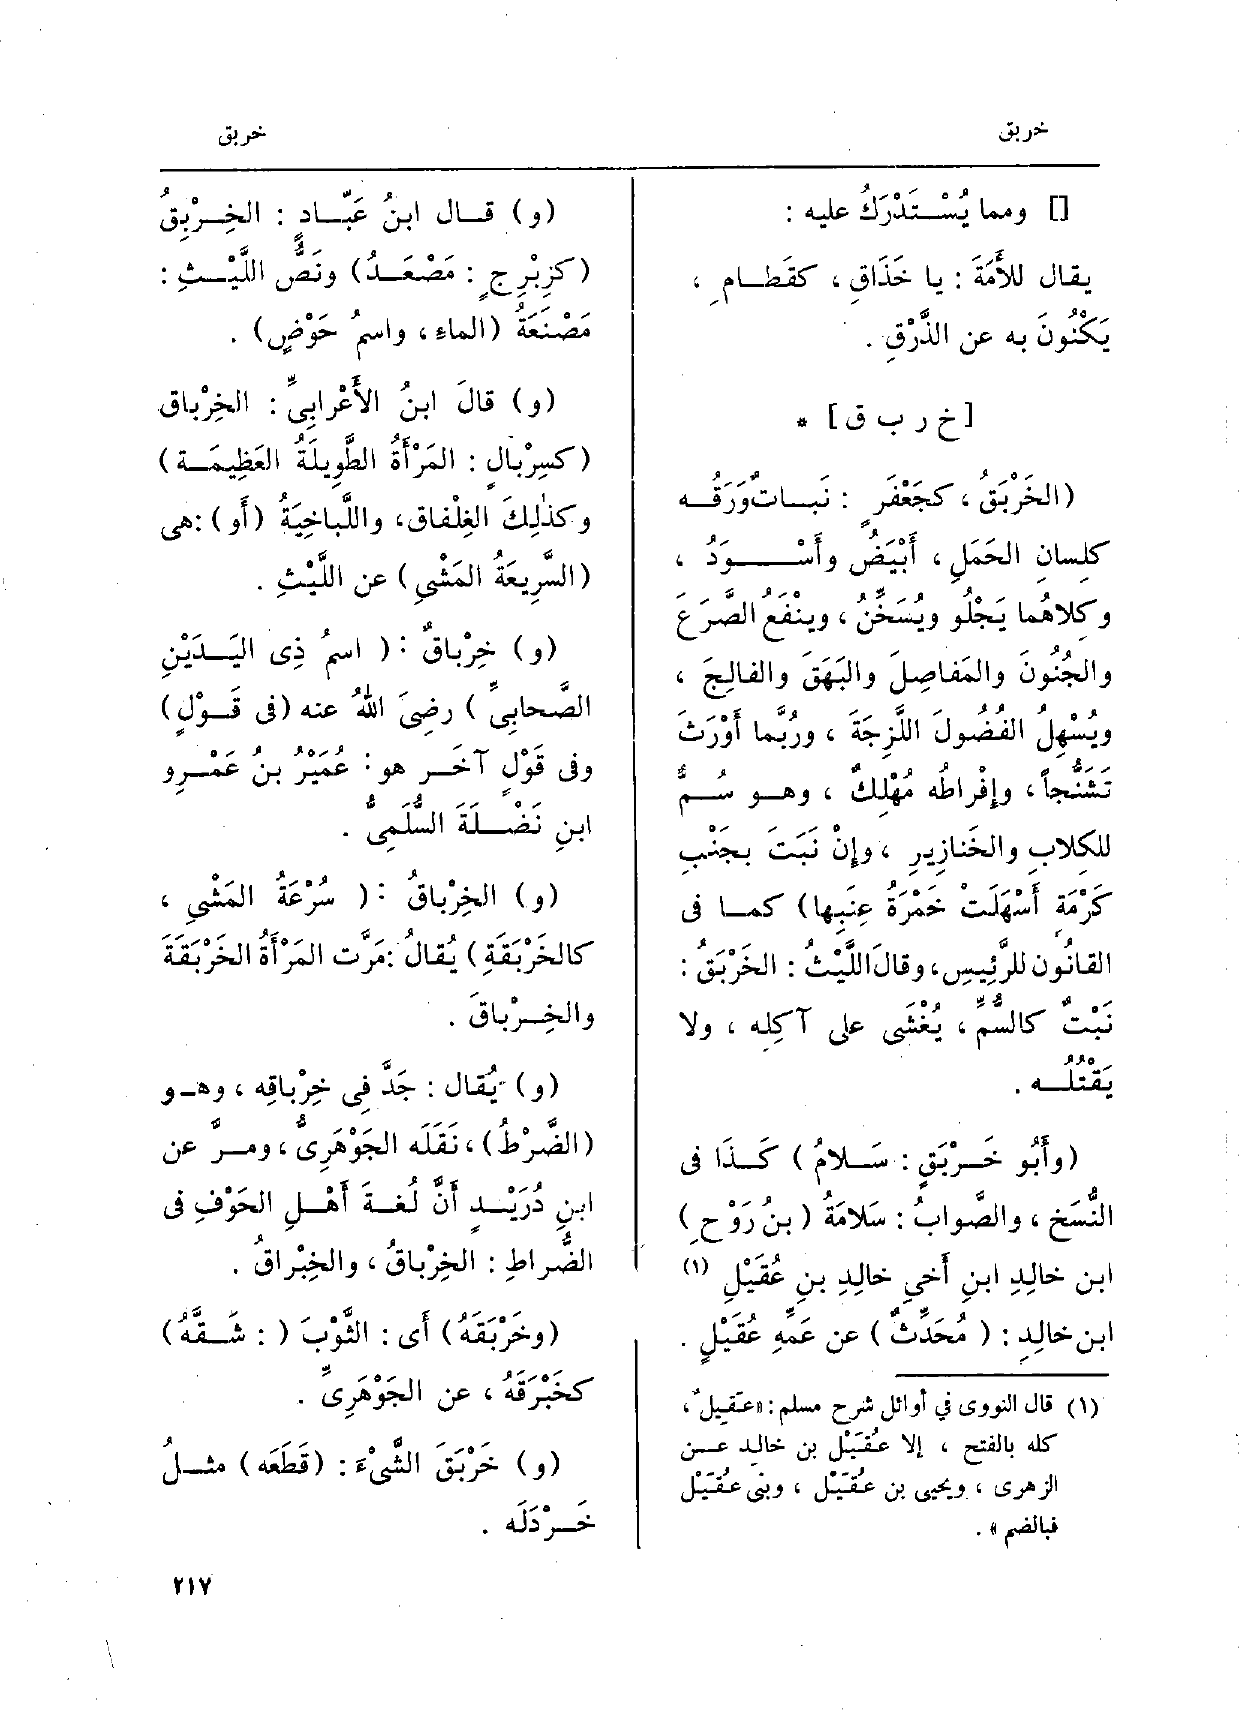 خربق
خربق
[] ومما يُسْتَدْرَكُ عليه :
يقال للأَمَة : يا خَذَاقِ ، كقَطَامِ ،
يَكْنُونَ به عن الذَّرْقِ .
[خ ر ب ق] *
(الخَرْبَقُ ، كجَعْفَرٍ : نَبَاتٌ وَرَقُه
كلِسانِ الحَمَلِ ، أَبْيَضُ وأَسْوَدُ ،
وكِلاهُما يَجْلُو ويُسَخِّنُ ، وينْفَعُ الصَّرَعَ
والجُنُونَ والمَفاصِلَ والبَهَقَ والفالِجَ ،
ويُسْهِلُ الفُضُولَ اللَّزِجَةَ ، ورُبَّما أَوْرَثَ
تَشَنُّجاً ، وإِفْراطُه مُهْلِكٌ ، وهو سُمٌّ
للكِلابِ والخَنازِيرِ ، وإِنْ نَبَتَ بجَنْبِ
كَرْمَةٍ أَسْهَلَتْ خَمْرَةُ عِنَبِها) كما فى
القانُون للرَّئِيسِ ، وقالَ اللَّيْثُ : الخَرْبَقُ :
نَبْتٌ كالسُّمِّ ، يُغْشَى على آكِلِه ، ولا
يَقْتُلُه .
(وأَبُو خَرْبَقٍ : سَلامُ) كَذَا فى
النُّسَخ ، والصَّوابُ : سَلامَةُ (بنُ رَوْحِ)
ابن خالِدِ ابنِ أَخِي خالِدِ بنِ عُقَيْلِ (١)
ابن خالِدٍ : (مُحَدِّثٌ) عن عَمِّهِ عُقَيْلٍ .
(١) قال النووى في أوائل شرح مسلم : «عَقِيل ،
كله بالفتح ، إلا عُقَيْل بن خالد عن
الزهرى ، ويحيى بن عُقَيْل ، وبنى عُقَيْل
فبالضم » .
(و) قال ابنُ عَبّاد : الخِرْبِقُ
(كزِبْرِجٍ : مَصْعَدُ) ونَصُّ اللَّيْثِ :
مَصْنَعَةُ (الماءِ ، واسمُ حَوْضٍ) .
(و) قالَ ابنُ الأَعْرابِيِّ : الخِرْباق
(كسِرْبالٍ : المَرْأَةُ الطَّوِيلَةُ العَظِيمَة)
وكذلِكَ الغِلْفاق ، واللُّباخِيَّةُ (أَو) : هى
(السَّرِيعَةُ المَشْيِ) عن اللَّيْثِ .
(و) خِرْباقٌ : (اسمُ ذِى اليَدَيْنِ
الصَّحابِيِّ) رضِىَ اللهُ عنه (فى قَوْلٍ)
وفى قَوْلٍ آخَر هو : عُمَيْرُ بنُ عَمْرِو
ابنِ نَضْلَةَ السُّلَمِىُّ .
(و) الخِرْباقُ : (سُرْعَةُ المَشْىِ ،
كالخَرْبَقَةِ) يُقالُ : مَرَّت المَرْأَةُ الخَرْبَقَةَ
والخِرْباقَ .
(و) يُقال : جَدَّ فى خِرْباقِه ، وهو
(الضَّرْطُ) ، نَقَلَه الجَوْهَرِىُّ ، ومرَّ عن
ابنِ دُرَيْدٍ أَنَّ لُغَةَ أَهْلِ الحَوْفِ فى
الضُّراطِ : الخِرْباقُ ، والخِبْراقُ .
(وخَرْبَقَهُ) أَى : الثَّوْبَ (: شَقَّهُ)
كخَبْرَقَهُ ، عن الجَوْهَرِىِّ .
(و) خَرْبَقَ الشَّىْءَ : (قَطَعَه) مثلُ
خَرْدَلَه .
٢١٧